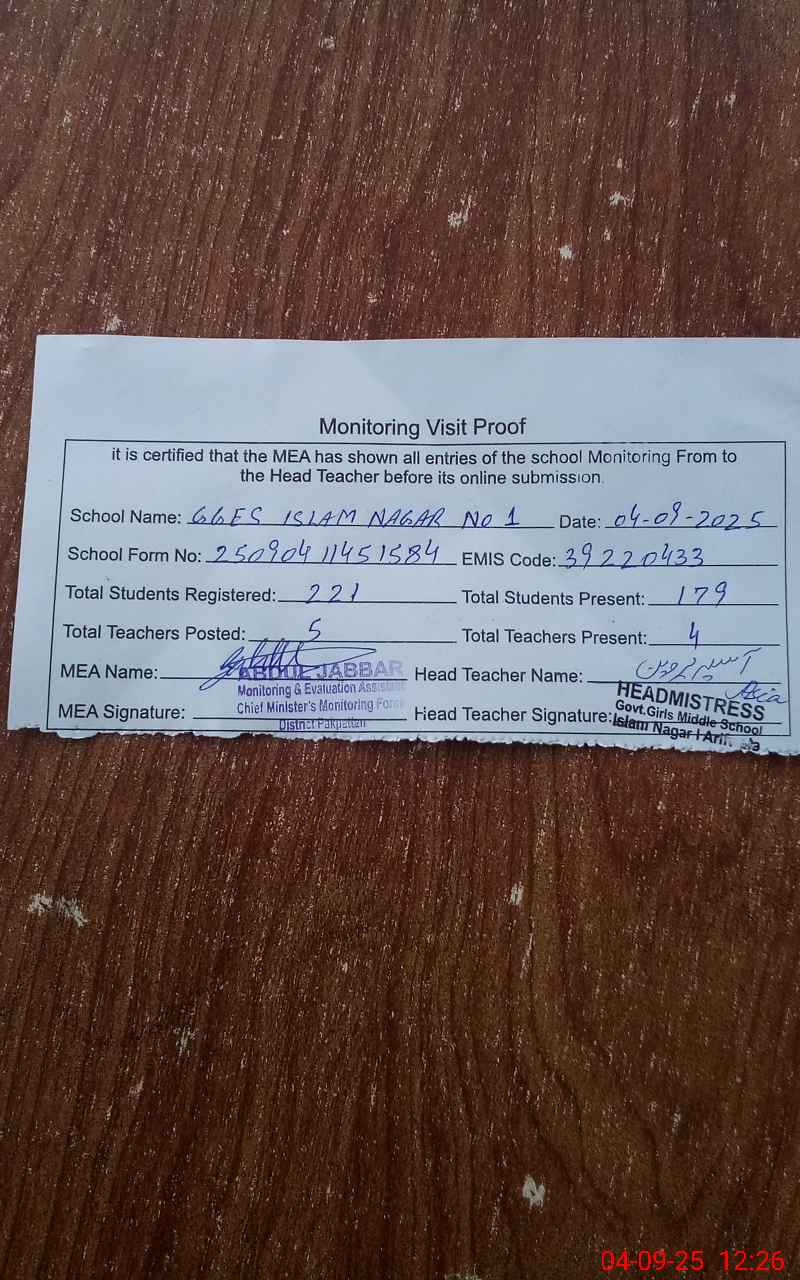 Monitoring Visit Proof
it is certified that the MEA has shown all entries of the school Monitoring From to
the Head Teacher before its online submission.
School Name: GGES ISLAM NAGAR NO 1 Date: 04-09-2025
School Form No: 25090411451584 EMIS Code: 39220433
Total Students Registered: 221 Total Students Present: 179
Total Teachers Posted: 5 Total Teachers Present: 4
MEA Name: ABDUL JABBAR Head Teacher Name: آسیہ پروین
Asia
Monitoring & Evaluation Assistant HEADMISTRESS
MEA Signature: Chief Minister's Monitoring Force Head Teacher Signature: Govt.Girls Middle School
District Pakpattan Islam Nagar I
04-09-25 12:26